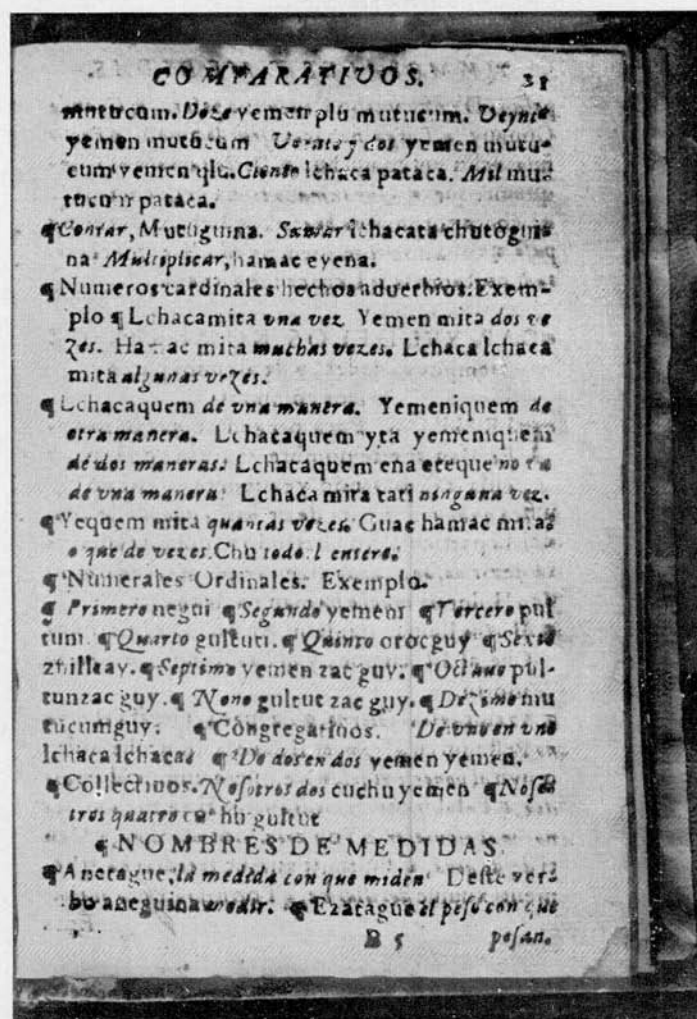 COMPARATIUOS. 31
mutucum. Doze yemen plu mutucum. Veynte
yemen mutucum Veynte y dos yemen mutu-
cum yemen qlu. Ciento lchaca pataca. Mil mu-
tucum pataca.
¶ Contar, Mutuguina. Sumar lchacata chutogui-
na Multiplicar, hamac eyena.
¶ Numeros cardinales hechos aduerbios. Exem-
plo ¶ Lchacamita vna vez Yemen mita dos ve
zes. Hamac mita muchas vezes. Lchaca lchaca
mita algunas vezes.
¶ Lchacaquem de vna manera. Yemeniquem de
otra manera. Lchacaquem yta yemeniquem
de dos maneras. Lchacaquem ena eteque no
de vna manera Lchaca mita tati ninguna vez.
¶ Yequem mita quantas vezes. Guac hamac mita
o que de vezes. Chu todo l entero.
¶ Numerales Ordinales. Exemplo.
¶ Primero negui ¶ Segundo yemeni ¶ Tercero pul
tum. ¶ Quarto gultuti. ¶ Quinto orocguy ¶ Sexto
zhilleay. ¶ Septimo yemen zac guy. ¶ Octauo pul-
tunzac guy. ¶ Nono gultut zac guy. ¶ Dezimo mu
tucumguy. ¶ Congregatiuos. De vno en vno
lchaca lchaca. ¶ De dos en dos yemen yemen.
¶ Collectiuos. Nosotros dos cuchu yemen ¶ Noso
tros quatro cuchu gultut
¶ NOMBRES DE MEDIDAS
¶ Anetague, la medida con que miden Deste ver-
bo aneguina medir. ¶ Ezatague el peso con que
B 5 pesan.